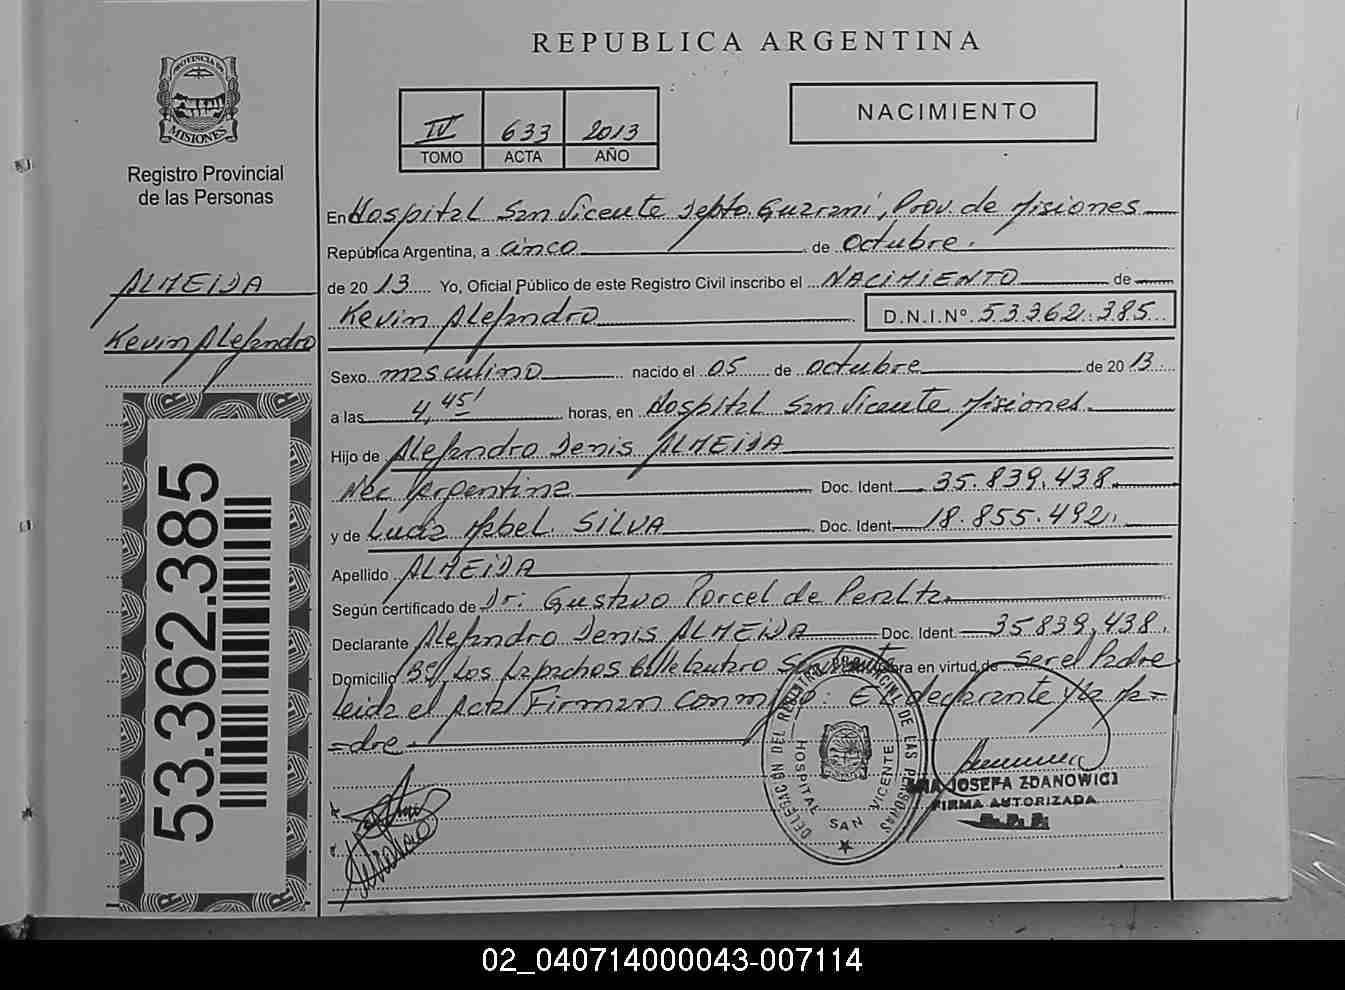 REPUBLICA ARGENTINA
PROVINCIA
MISIONES
Registro Provincial
de las Personas
ALMEIDA
Kevin Alejandro
53.362.385
IV 633 2013
TOMO ACTA AÑO
NACIMIENTO
En Hospital San Vicente Depto. Guarani, Prov. de Misiones
República Argentina, a cinco de octubre.
de 2013 Yo, Oficial Público de este Registro Civil inscribo el NACIMIENTO de
Kevin Alejandro D.N.I.Nº 53362.385
Sexo masculino nacido el 05 de octubre de 2013
a las 4,45' horas, en Hospital San Vicente Misiones.
Hijo de Alejandro Denis ALMEIDA
Nac Argentina Doc. Ident. 35.839.438
y de Lucia Mabel SILVA Doc. Ident. 18.855.492
Apellido ALMEIDA
Según certificado de Dr. Gustavo Porcel de Peralta
Declarante Alejandro Denis ALMEIDA Doc. Ident. 35839,438.
Domicilio Los Lapachos en virtud de ser el Padre
Leida el Acta Firman conmigo: El declarante y la Ma=
=dre
DELEGACIÓN DEL REGISTRO PROVINCIAL DE LAS PERSONAS
HOSPITAL SAN VICENTE
JOSEFA ZDANOWICZ
FIRMA AUTORIZADA
02_040714000043-007114